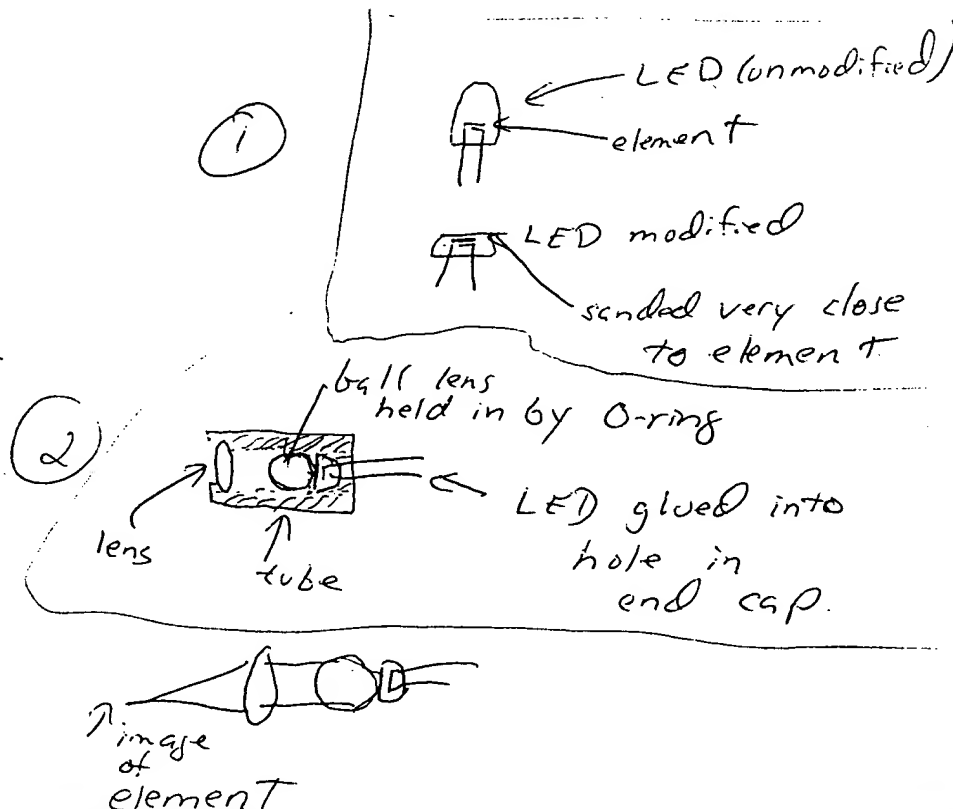 1
LED (unmodified)
element
LED modified
sanded very close
to element
2
ball lens
held in by O-ring
LED glued into
hole in
end cap.
lens
tube
image
of
element